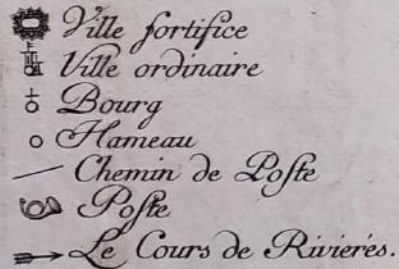 Ville fortifice
Ville ordinaire
Bourg
Hameau
Chemin de Poſte
Poſte
Le Cours de Rivierés.